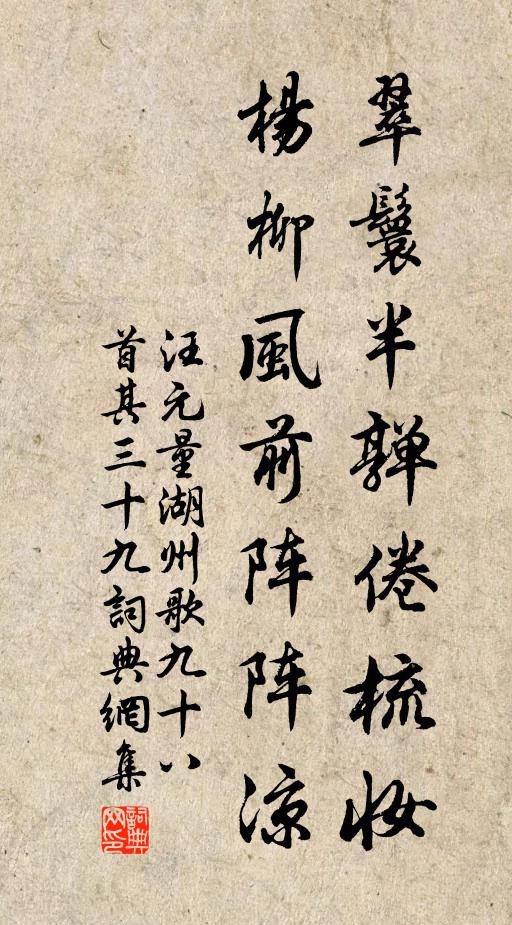 翠鬟半亸倦梳妆
楊柳風前阵阵凉
汪元量湖州歌九十八
首其三十九詞典網集
詞典
网印